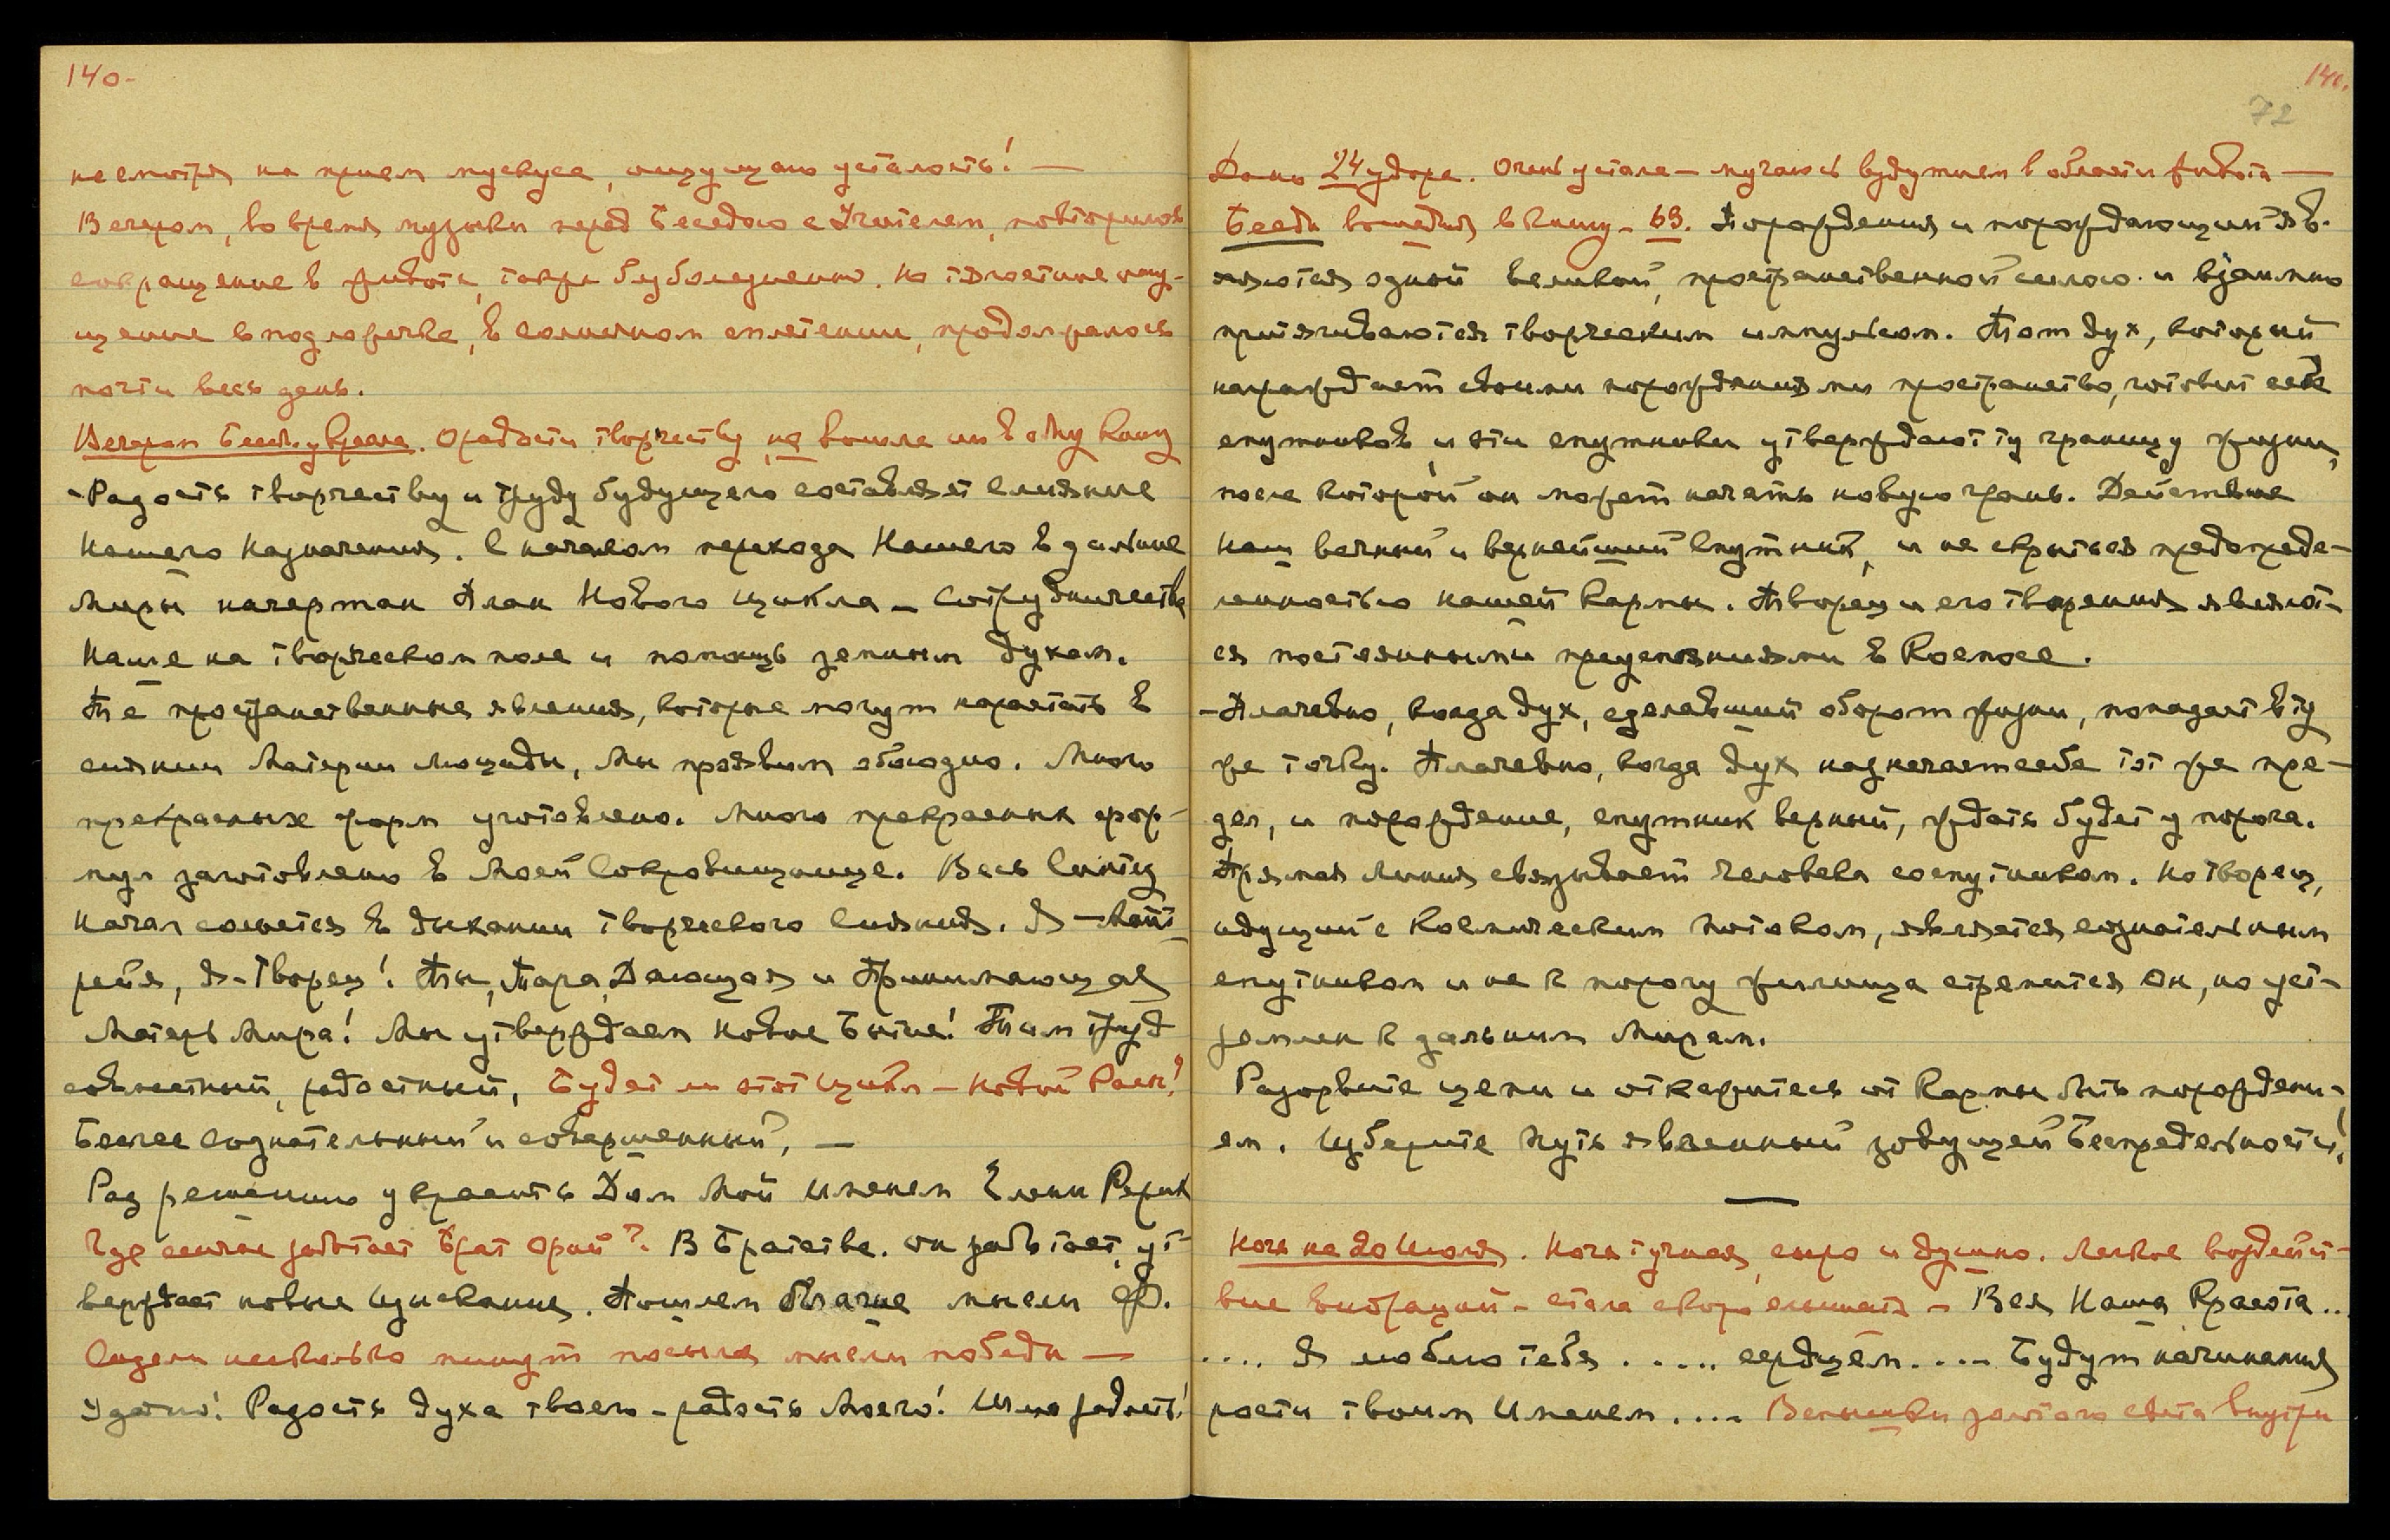 140-
несмотря на прием мускуса, ощущаю усталость! —
Вечером, во время музыки перед Беседою с Учителем, повторилось
сокращение в животе, также безболезненно. Но тягостное ощу-
щение в подложечке, в солнечном сплетении, продолжалось
почти весь день.
Вечером Беседа у врача. О радости творчеству, не вошла ни в одну книгу
-Радость творчеству и труду будущего составляет слияние
Нашего Назначения. С началом перехода Нашего в дальние
Миры начертан План Нового цикла – Сотрудничества
Наше на творческом поле и помощь земным духам.
Те пространственные явления, которые могут нарастать в
сиянии Материи Люциды, Мы проявим обоюдно. Много
прекрасных форм уготовлено. Много прекрасных фор-
мул заготовлено в Моей Сокровищнице. Весь Синтез
Начал сольется в дыхании творческого Сияния. Я – Май-
рейя, Я – Творец! Ты, Тара, Дающая и Принимающая
Матерь Мира! Мы утверждаем Новое Бытие! Там труд
совместный, радостный. Будет ли этот цикл – новой Расы?
Более сознательный и совершенный. —
Разрешаю украсить Дом Мой Именем Елены Рерих
Где сейчас работает Брат Орай? В Братстве. Он работает, ут-
верждает новые Изыскания. Пошлем благие мысли Ф.
Сидели несколько минут посылая мысли победы —
Удачно! Радость духа твоего – радость Моего! Шлю радость!
140.
72
Домы 24 удара. Очень устала – мучаюсь вздутием в области живота —
Беседа вошедшая в книгу – 63. Порождения и порождающий яв-
ляются одной великой, пространственной силою и взаимно
притягиваются творческим импульсом. Тот дух, который
нарождает своими порождениями пространство, готовит себе
спутников, и эти спутники утверждают ту границу жизни,
после которой он может начать новую грань. Действие
наш вечный и вернейший Спутник, и не скрыться предопреде-
ленностью нашей Кармы. Творец и его творения являют-
ся постоянными преуспеяниями в Космосе.
-Плачевно, когда дух, сделавший оборот жизни, попадает в ту
же точку. Плачевно, когда дух назначает себе тот же пре-
дел, и порождение, спутник верный, ждать будет у порога.
Прямая линия связывает человека со спутником. Но творец,
идущий с Космическим Потоком, является сознательным
спутником и не к порогу жилища стремится Он, но уст-
ремлен к дальним Мирам.
Разорвите цепи и откажитесь от Кармы быть порождени-
ем. Изберите Путь явленный зовущей Беспредельности!
Ночь на 20 Июля. Ночь тучная, сыро и душно. Легкое воздейст-
вие вибраций – стала скоро слышать – Вся Наша Красота...
.... Я люблю тебя ..... сердцем .... Будут начинания
расти твоим Именем .... Вспышки золотого света внутри